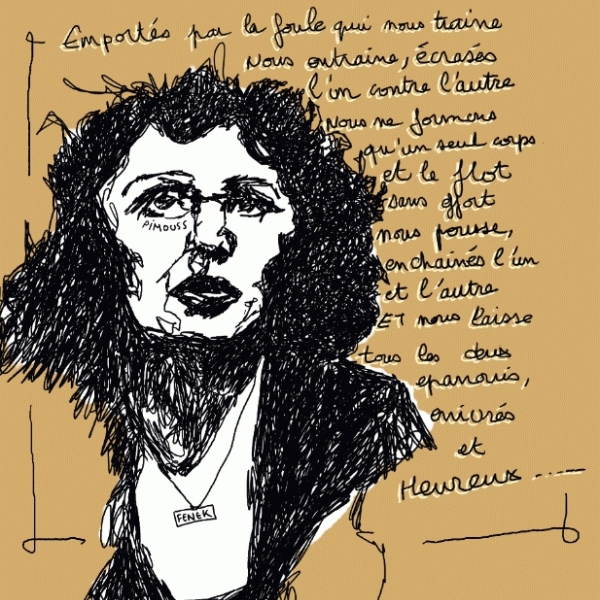 Emportés par la foule qui nous traine
Nous entraine, écrasés
l'un contre l'autre
Nous ne formons
qu'un seul corps
et le flot
sans effort
nous pousse,
enchainés l'un
et l'autre
ET nous laisse
tous les deux
epanouis,
enivrés
et
Heureux .....
PIMOUSS
FENEK